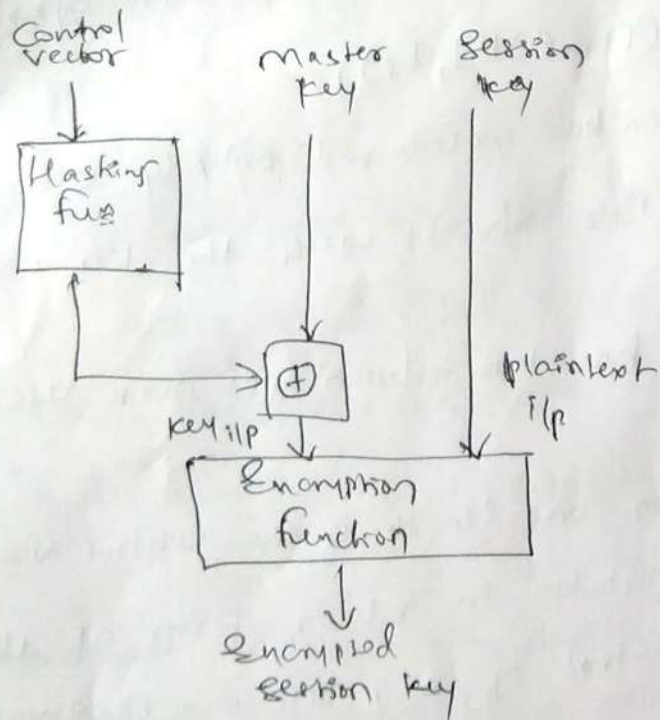 Control
vector
Master
key
Session
key
Hashing
fun
+
plaintext
i/p
key i/p
Encryption
function
Encrypted
session key